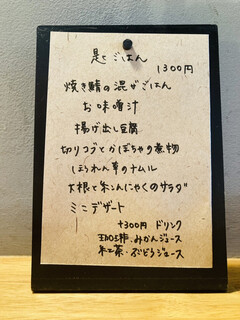 昼ごはん
1300円
焼き鯖の混ぜごはん
お味噌汁
揚げ出し豆腐
切りコブとかぼちゃの煮物
ほうれん草のナムル
大根と糸こんにゃくのサラダ
ミニデザート
+300円 ドリンク
珈琲・みかんジュース
紅茶・ぶどうジュース